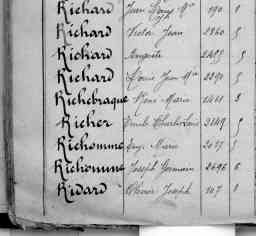 Richard Jean Louis Mie 190 1
Richard Victor Jean 2860 5
Richard Auguste 2485 5
Richard Louis Jean Mie 2290 5
Richebraque René Marie 1411 3
Richer Emile Charles Louis 2249 5
Richomme Eug. Marie 2027 5
Richomme Joseph Germain 2696 6
Ridard Joseph 107 1